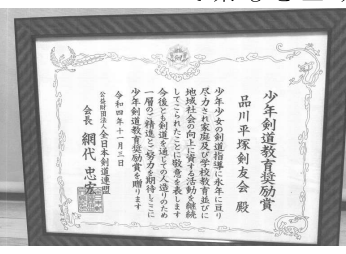 少年剣道教育奨励賞
品川平塚剣友会 殿
少年少女の剣道指導に永年に亘り
尽力され家庭及び学校教育並びに
地域社会の向上に資する活動を継続
してこられたことに敬意を表します
今後とも剣道を通じての人造りのため
一層のご精進とご努力を期待しここに
少年剣道教育奨励賞を贈ります
令和四年十一月三日
公益財団法人全日本剣道連盟
会長 網代忠宏